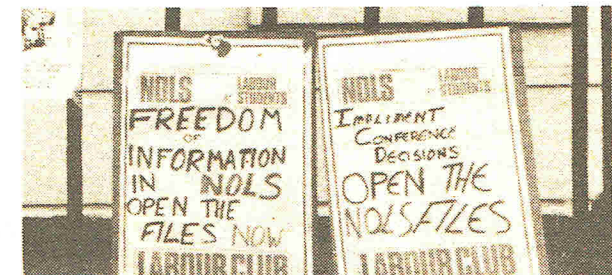 NOLS LABOUR STUDENTS
FREEDOM
OF
INFORMATION
IN NOLS
OPEN THE
FILES NOW
LABOUR CLUB
NOLS LABOUR STUDENTS
IMPLIMENT
CONFERENCE
DECISIONS
OPEN THE
NOLS FILES
LABOUR CLUB